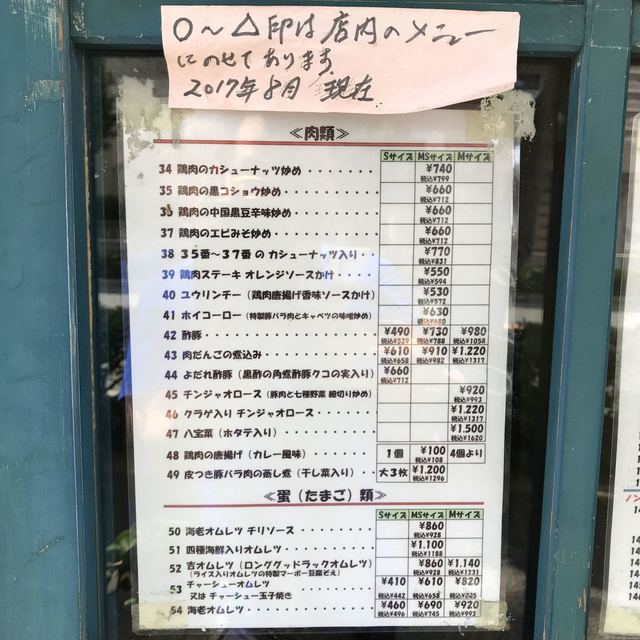 〇～△印は店内のメニュー
にのせてあります
2017年8月 現在
≪肉類≫
Sサイズ MSサイズ Mサイズ
34 鶏肉のカシューナッツ炒め ¥740 税込¥799
35 鶏肉の黒コショウ炒め ¥660 税込¥712
36 鶏肉の中国黒豆辛味炒め ¥660 税込¥712
37 鶏肉のエビみそ炒め ¥660 税込¥712
38 35番～37番 の カシューナッツ入り ¥770 税込¥831
39 鶏肉ステーキ オレンジソースかけ ¥550 税込¥594
40 ユウリンチー（鶏肉唐揚げ香味ソースかけ） ¥530 税込¥572
41 ホイコーロー（特製豚バラ肉とキャベツの味噌炒め） ¥630 税込¥680
42 酢豚 ¥490 税込¥529 ¥730 税込¥788 ¥980 税込¥1058
43 肉だんごの煮込み ¥610 税込¥658 ¥910 税込¥982 ¥1.220 税込¥1317
44 よだれ酢豚（黒酢の角煮酢豚クコの実入り） ¥660 税込¥712
45 チンジャオロース（豚肉と七種野菜 細切り炒め） ¥920 税込¥993
46 クラゲ入り チンジャオロース ¥1.220 税込¥1317
47 八宝菜（ホタテ入り） ¥1.500 税込¥1620
48 鶏肉の唐揚げ（カレー風味） 1個 ¥100 税込¥108 4個より
49 皮つき豚バラ肉の蒸し煮（干し菜入り） 大3枚 ¥1.200 税込¥1296
≪蛋（たまご）類≫
Sサイズ MSサイズ Mサイズ
50 海老オムレツ チリソース ¥860 税込¥928
51 四種海鮮入りオムレツ ¥1.100 税込¥1188
52 吉オムレツ（ロンググッドラックオムレツ） ¥860 税込¥928 ¥1.140 税込¥1231
（ライス入りオムレツの特製マーボー豆腐ぞえ）
53 チャーシューオムレツ ¥410 税込¥442 ¥610 税込¥658 ¥820
又は チャーシュー玉子焼き
54 海老オムレツ ¥460 税込¥496 ¥690 税込¥745 ¥920 税込¥993